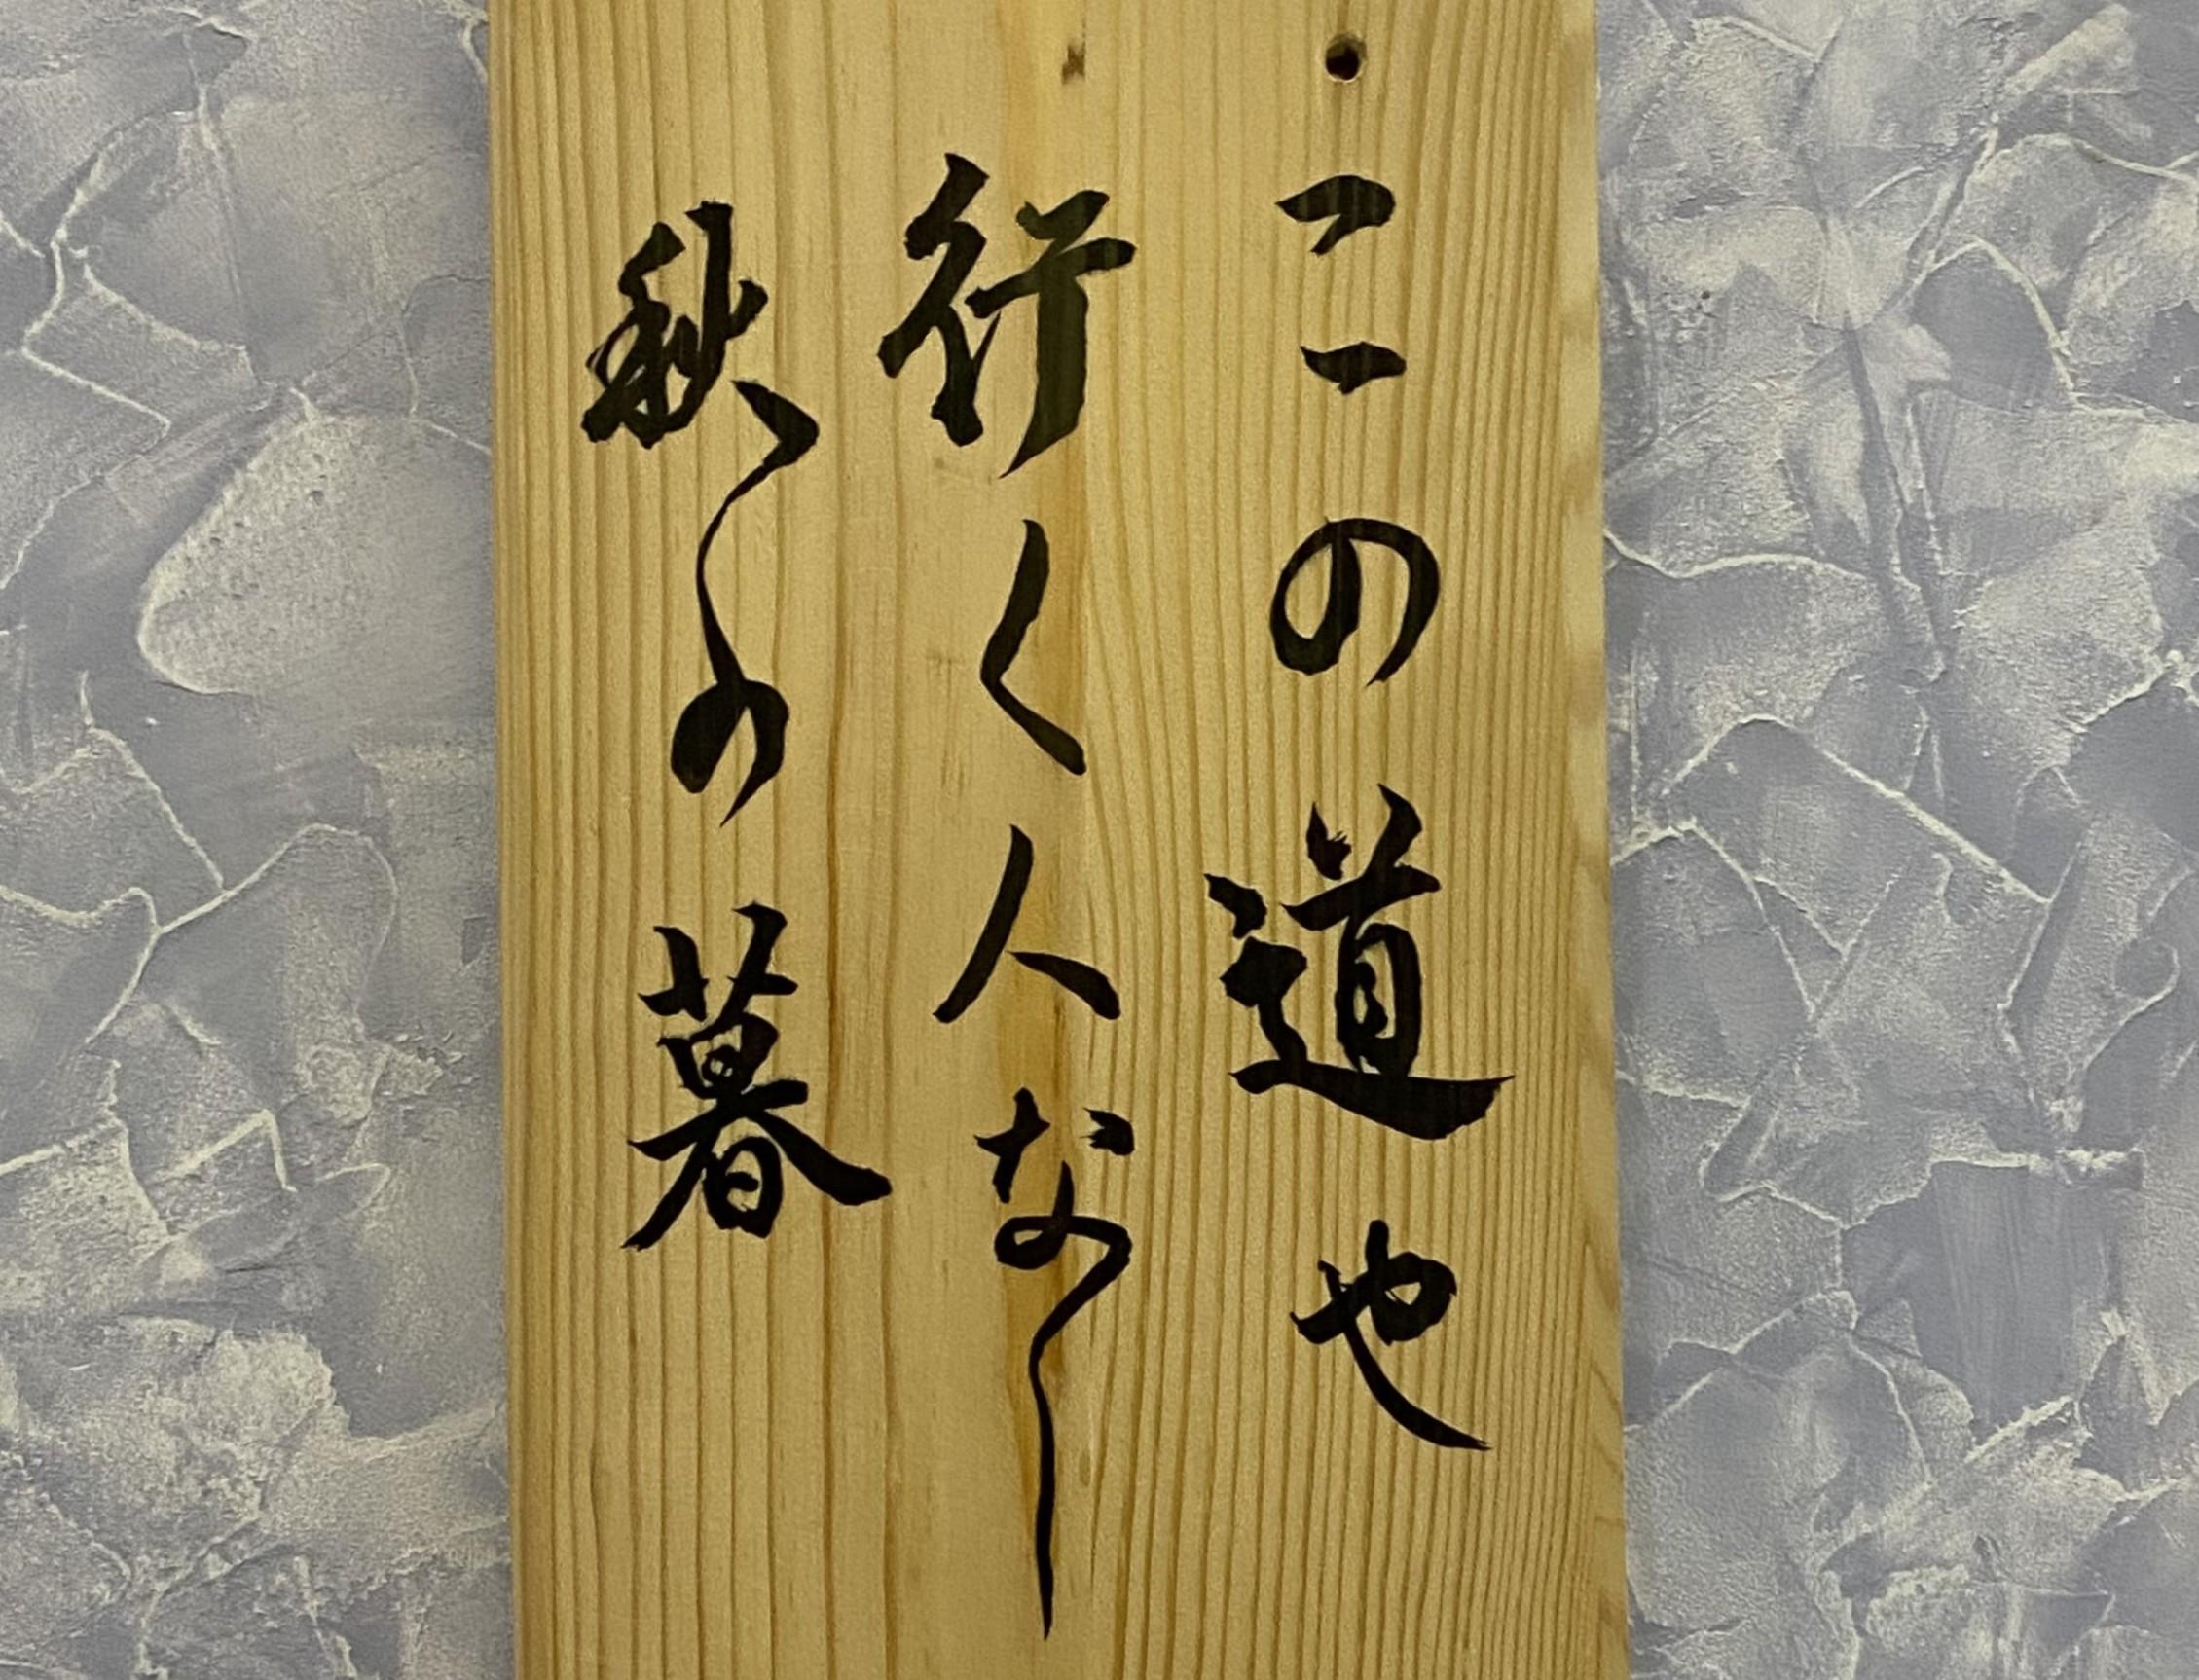 この道也
行く人なし
秋の暮